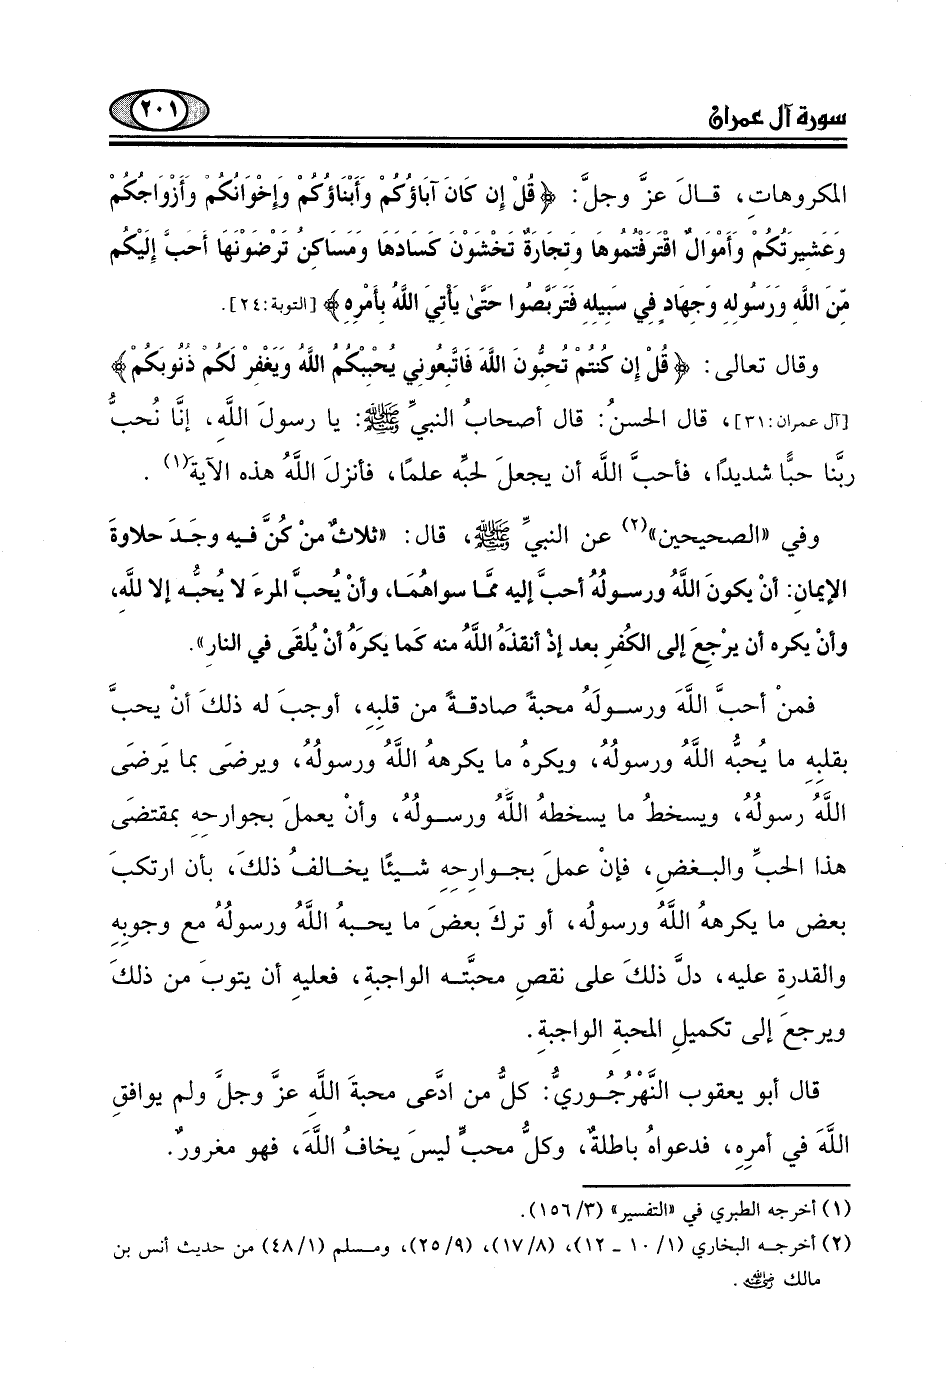 سورة آل عمران
٢٠١
المكروهات، قالَ عزَّ وجلَّ: ﴿قُلْ إِن كَانَ آبَاؤُكُمْ وَأَبْنَاؤُكُمْ وَإِخْوَانُكُمْ وَأَزْوَاجُكُمْ
وَعَشِيرَتُكُمْ وَأَمْوَالٌ اقْتَرَفْتُمُوهَا وَتِجَارَةٌ تَخْشَوْنَ كَسَادَهَا وَمَسَاكِنُ تَرْضَوْنَهَا أَحَبَّ إِلَيْكُم
مِّنَ اللَّهِ وَرَسُولِهِ وَجِهَادٍ فِي سَبِيلِهِ فَتَرَبَّصُوا حَتَّىٰ يَأْتِيَ اللَّهُ بِأَمْرِهِ﴾ [التوبة:٢٤].
وقال تعالى: ﴿قُلْ إِن كُنتُمْ تُحِبُّونَ اللَّهَ فَاتَّبِعُونِي يُحْبِبْكُمُ اللَّهُ وَيَغْفِرْ لَكُمْ ذُنُوبَكُمْ﴾
[آل عمران:٣١]، قال الحسنُ: قال أصحابُ النبيِّ ﷺ: يا رسولَ اللَّهِ، إنَّا نُحبُّ
ربَّنا حبًّا شديدًا، فأحبَّ اللَّه أن يجعلَ لحبِّه علمًا، فأنزلَ اللَّهُ هذه الآيةَ(١).
وفي «الصحيحين»(٢) عن النبيِّ ﷺ، قال: «ثلاثٌ منْ كُنَّ فيه وجدَ حلاوةَ
الإيمان: أنْ يكونَ اللَّهُ ورسولُهُ أحبَّ إليه ممَّا سواهُمَا، وأنْ يُحبَّ المرءَ لا يُحبُّه إلا للهِ،
وأنْ يكره أن يرْجعَ إلى الكُفرِ بعد إذْ أنقذَهُ اللَّهُ منه كَما يكرَهُ أنْ يُلقَى في النارِ».
فمنْ أحبَّ اللَّهَ ورسولَهُ محبةً صادقةً من قلبِهِ، أوجبَ له ذلكَ أنْ يحبَّ
بقلبِهِ ما يُحبُّه اللَّهُ ورسولُهُ، ويكرهُ ما يكرههُ اللَّهُ ورسولُهُ، ويرضَى بما يَرضَى
اللَّهُ رسولُهُ، ويسخطُ ما يسخطهُ اللَّهُ ورسولُهُ، وأنْ يعملَ بجوارحِهِ بمقتضَى
هذا الحبِّ والبغضِ، فإنْ عملَ بجوارحِهِ شيئًا يخالفُ ذلكَ، بأن ارتكبَ
بعض ما يكرههُ اللَّهُ ورسولُه، أو تركَ بعضَ ما يحبهُ اللَّهُ ورسولُهُ مع وجوبِهِ
والقدرةِ عليه، دلَّ ذلكَ على نقصِ محبَّتِه الواجبةِ، فعليهِ أن يتوبَ من ذلكَ
ويرجعَ إلى تكميلِ المحبةِ الواجبةِ.
قال أبو يعقوب النَّهْرُجُوريُّ: كلُّ من ادَّعى محبةَ اللَّهِ عزَّ وجلَّ ولم يوافقِ
اللَّهَ في أمرِهِ، فدعواهُ باطلةٌ، وكلُّ محبٍّ ليسَ يخافُ اللَّهَ، فهو مغرورٌ.
(١) أخرجه الطبري في «التفسير» (٣/١٥٦).
(٢) أخرجه البخاري (١/١٠ - ١٢)، (٨/١٧)، (٩/٢٥)، ومسلم (١/٤٨) من حديث أنس بن
مالك رضي الله عنه.